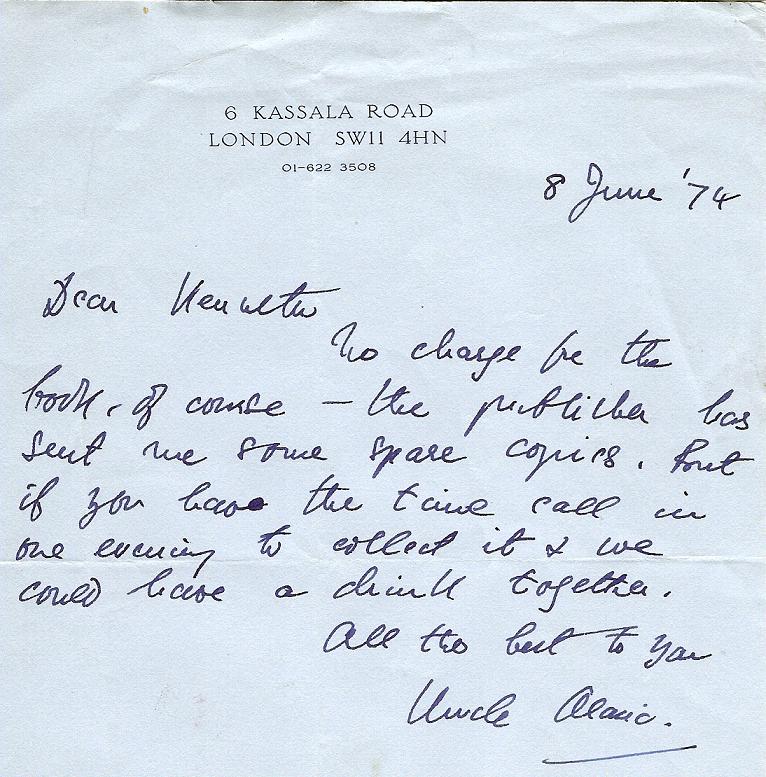 6 KASSALA ROAD
LONDON SW11 4HN
01-622 3508
8 June '74
Dear Kenneth
No charge for the
book, of course – the publisher has
sent me some spare copies. But
if you have the time call in
one evening to collect it & we
could have a drink together.
All the best to you
Uncle Alaric.